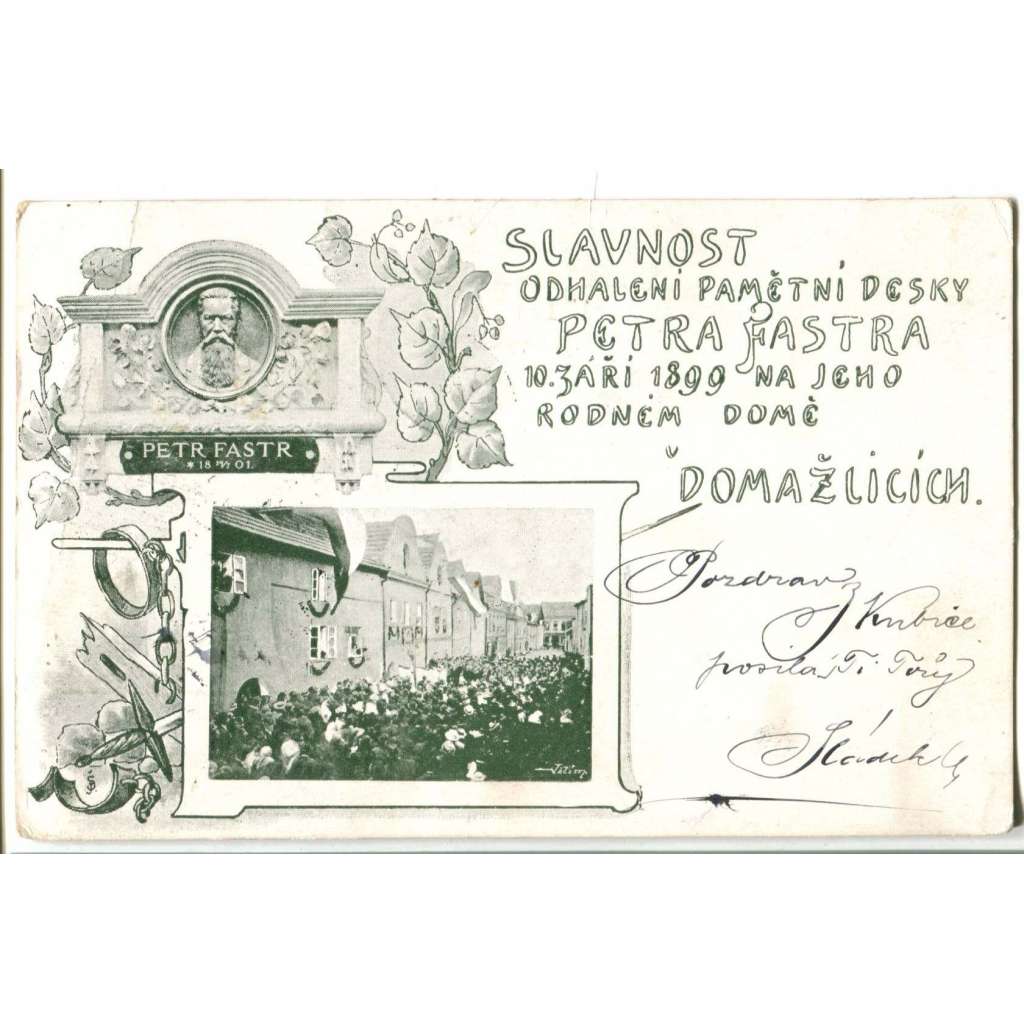 SLAVNOST
ODHALENÍ PAMĚTNÍ DESKY
PETRA FASTRA
10. ZÁŘÍ 1899 NA JEHO
RODNÉM DOMĚ
V DOMAŽLICÍCH.
PETR FASTR
* 18 01.
Pozdrav
z Kubice
posílá Ti
Sládek